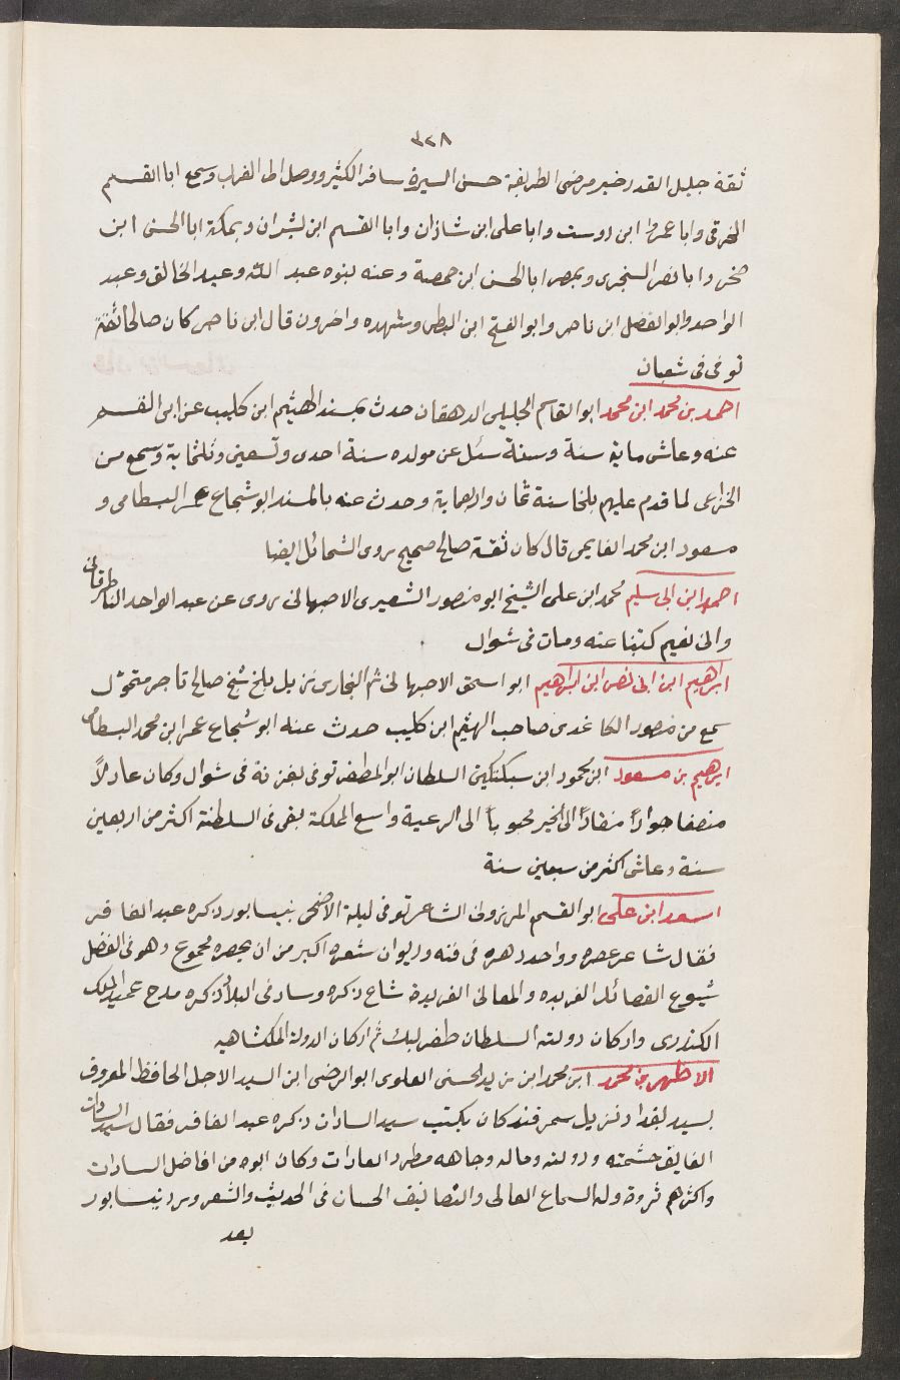 ٣٢٨
ثقة جليل القدر خير مرضى الطريقة حسن السيرة سافر الكثير ووصل الى الغرب وسمع ابا القسم
الخرقى وابا عمروا ابن دوست وابا على ابن شاذان وابا القسم ابن بشران وبمكة ابا الحسن ابن
صخر وابا نصر السنجرى وبمصر ابا الحسن ابن حمصة وعنه بنوه عبد الله وعبد الخالق وعبد
الواحد وابو الفضل ابن ناصر وابو الفتح ابن البطى وشهده واخرون قال ابن ناصر كان صالحا ثقة
توفى فى شعبان
احمد بن محمد ابن محمد ابو القاسم الخليلى الدهقان حدث بمسند الهيثم ابن كليب عن ابى القسم
عنه وعاش ماية سنة وسنة سئل عن مولده سنة احدى وتسعين وثلثماية وسمع من
الخزاعى لما قدم عليهم بلخا سنة ثمان واربعماية وحدث عنه بالمسند ابو شجاع عمر البسطامى و
مسعود ابن محمد الغايمى قال كان ثقة صالح صحيح يروى الشمائل ايضا
احمد ابن ابى سليم محمد ابن على الشيخ ابو منصور الشعيرى الاصبهانى يروى عن عبد الواحد الباطرقانى
وابى نعيم كتبنا عنه ومات فى شوال
ابراهيم ابن ابى نصر ابن ابراهيم ابو اسحق الاصبهانى ثم البخارى نزيل بلخ شيخ صالح تاجر متمول
سمع من منصور الكاغدى صاحب الهيثم ابن كليب حدث عنه ابو شجاع عمر ابن محمد البسطامى
ابرهيم بن مسعود ابن محمود ابن سبكتكين السلطان ابو المظفر توفى بغزنة فى شوال وكان عادلاً
منصفا جواداً منقاداً الى الخير محبوباً الى الرعية واسع المملكة بقى فى السلطنة اكثر من اربعين
سنة وعاش اكثر من سبعين سنة
اسعد ابن على ابو القسم الزوزنى الشاعر توفى ليلة الاضحى بنيسابور ذكره عبد الغافر
فقال شاعر عصره وواحد دهره فى فنه وديوان شعره اكبر من ان يحصره مجموع وهو فى الفضل
ينبوع القصائد الفريده والمعانى الفريدة شاع ذكره وساد فى البلاد ذكره مدح عميد الملك
الكندرى واركان دولته السلطان طغرلبك ثم اركان الدولة الملكشاهيه
الاطهر بن محمد ابن محمد ابن زيد الحسنى العلوى ابو الرضى ابن السيد الاجل الحافظ المعروف
بسيد بغداد نزيل سمرقند كان يكتب سيد السادات ذكره عبد الغافر فقال سيد السادات
الفايق حشمته ودولته وماله وجاهه مطرد العادات وكان ابوه من افاضل السادات
واكثرهم ثروة وله السماع العالى والتصانيف الحسان فى الحديث والشعر ورد نيسابور
بعد